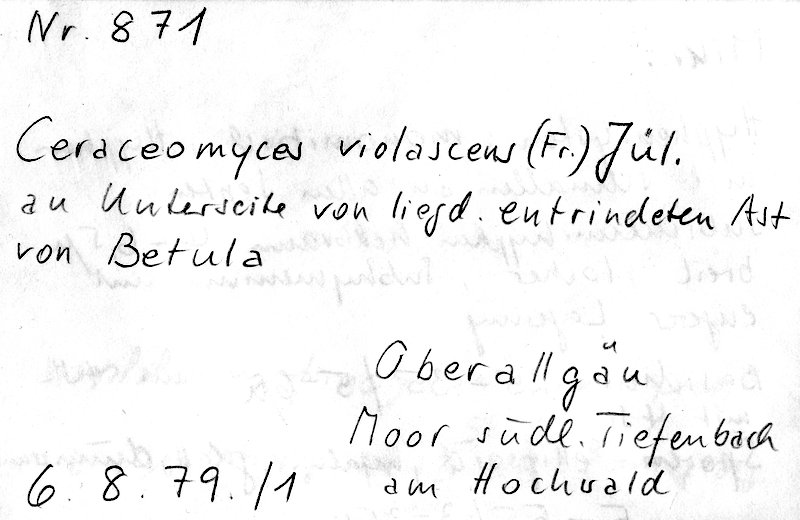 Nr. 871
Ceraceomyces violascens (Fr.) Jül.
an Unterseite von liegd. entrindeten Ast
von Betula
Oberallgäu
Moor südl. Tiefenbach
6. 8. 79./1 am Hochwald